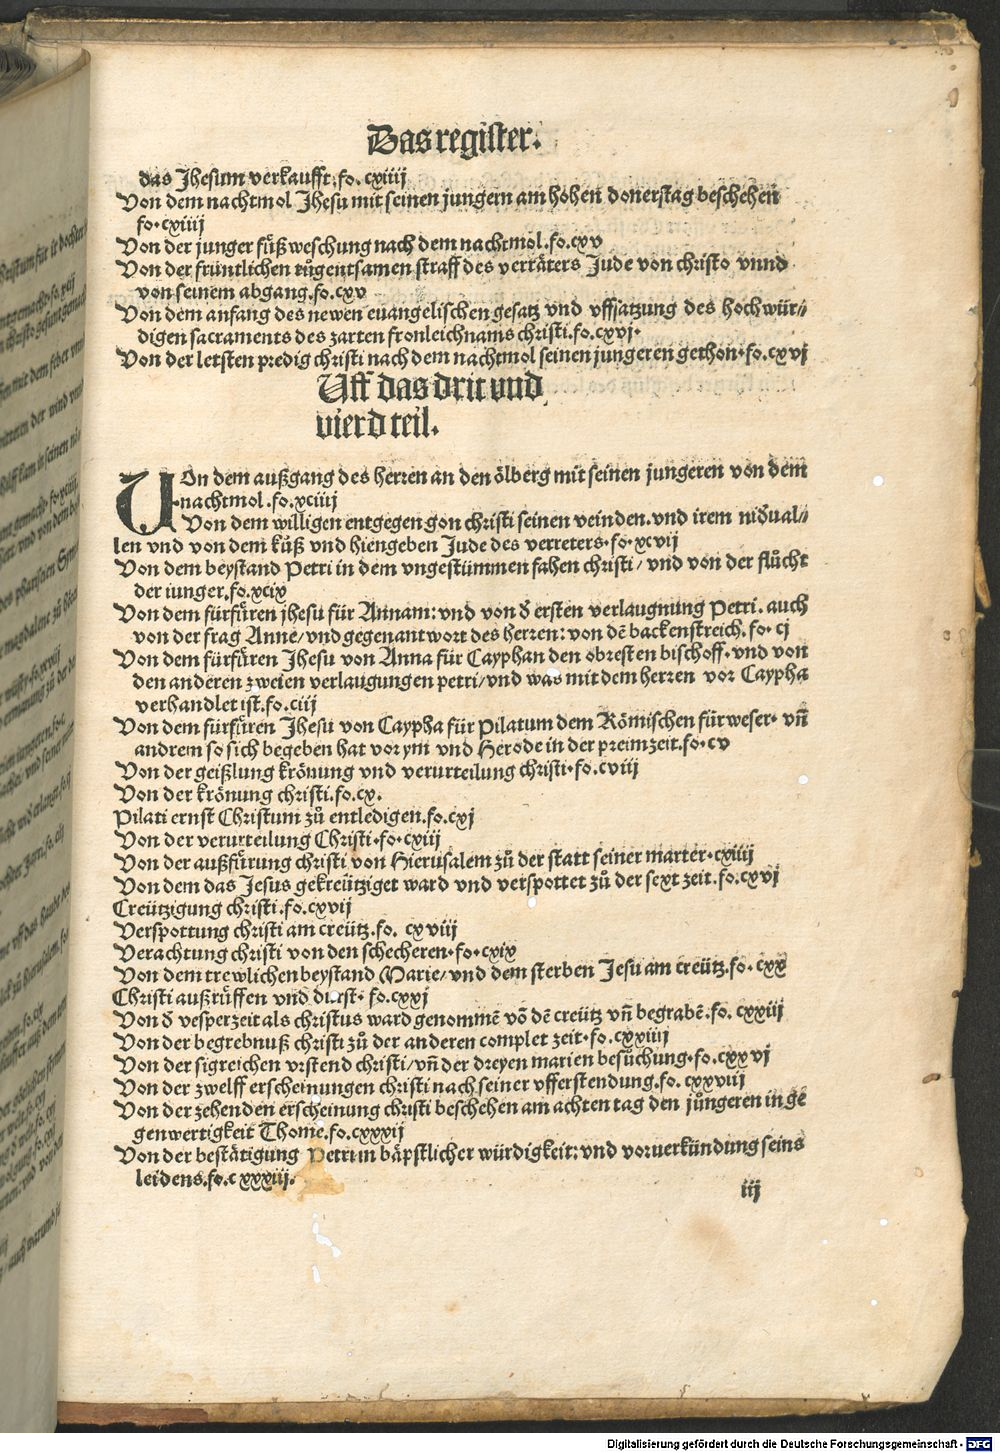 Das register.
das Jhesum verkaufft.fo. cxiiij
Von dem nachtmol Jhesu mit seinen jungern am hohen donerstag beschehen
fo.cxiiij
Von der junger füß weschung nach dem nachtmol.fo.cxv
Von der früntlichen tůgentsamen straff des verräters Jude von christo vnnd
von seinem abgang.fo.cxv
Von dem anfang des newen euangelischen gesatz vnd vffsatzung des hochwür⸗
digen sacraments des zarten fronleichnams christi.fo.cxvj.
Von der letsten predig christi nach dem nachtmol seinen jungeren gethon.fo.cxvj
Uff das drit vnd
vierd teil.
VOn dem außgang des herren an den ölberg mit seinen jungeren von dem
nachtmol.fo.xciiij
Von dem willigen entgegen gon christi seinen veinden.vnd irem niđual⸗
len vnd von dem kůß vnd hiengeben Jude des verreters.fo.xcvij
Von dem beystand Petri in dem vngestümmen fahen christi/vnd von der flůcht
der iunger.fo.xcix
Von dem fürfůren jhesu für Annam:vnd von đ ersten verlaugnung Petri. auch
von der frag Anne/vnd gegenantwort des herren:von dē backenstreich.fo. cj
Von dem fürfůren Jhesu von Anna für Cayphan den obresten bischoff.vnd von
den anderen zweien verlaugungen petri/vnd was mit dem herren vor Caypha
verhandlet ist.fo.ciij
Von dem fürfůren Jhesu von Caypha für Pilatum dem Römischen fürweser. vñ
andrem so sich begeben hat vor ym vnd Herode in der preimzeit.fo.cv
Von der geißlung krönung vnd verurteilung christi.fo.cviij
Von der krönung christi.fo.cx.
Pilati ernst Christum zů entledigen.fo.cxj
Von der verurteilung Christi.fo.cxiij
Von der außfůrung christi von Hierusalem zů der statt seiner marter.cxiiij
Von dem das Jesus gekreütziget ward vnd verspottet zů der sext zeit.fo.cxvj
Creützigung christi.fo.cxvij
Verspottung christi am creütz.fo. cxviij
Verachtung christi von den schecheren.fo.cxix
Von dem trewlichen beystand Marie/vnd dem sterben Jesu am creütz.fo. cxx
Christi außrůffen vnd durst. fo.cxxj
Von đ vesperzeit als christus ward genommē võ dē creütz vñ begrabē.fo. cxxiij
Von der begrebnuß christi zů der anderen complet zeit.fo.cxxiiij
Von der sigreichen vrstend christi/vñ der dreyen marien besůchung.fo.cxxvj
Von der zwelff erscheinungen christi nach seiner vfferstendung.fo. cxxviij
Von der zehenden erscheinung christi beschehen am achten tag den jůngeren in gē
genwertigkeit Thome.fo.cxxxij
Von der bestätigung Petri in bäpstlicher würdigkeit:vnd vorverkündung seins
leidens.fo.cxxxiij.
iij
Digitalisierung gefördert durch die Deutsche Forschungsgemeinschaft - DFG